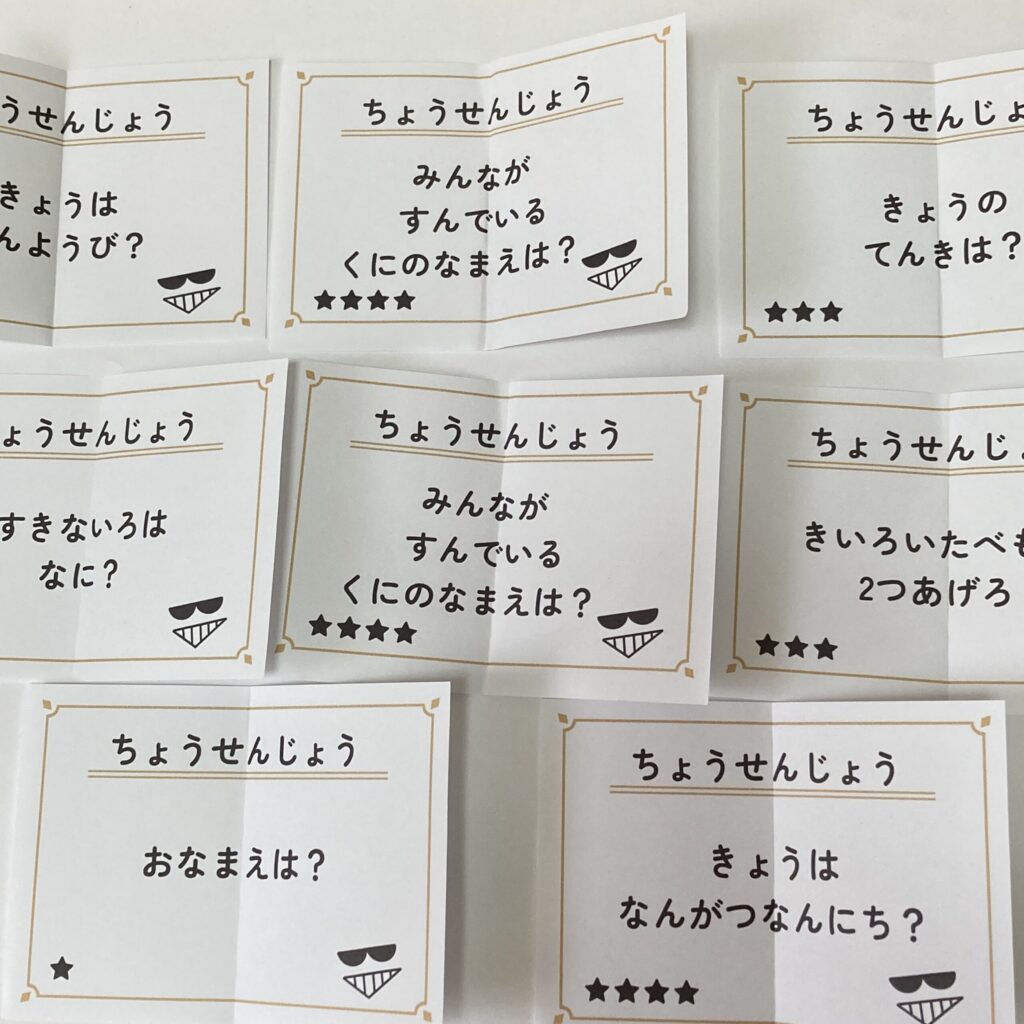 うせんじょう
きょうは
んようび?
ちょうせんじょう
みんなが
すんでいる
くにのなまえは?
★★★★
ちょうせんじょ
きょうの
てんきは?
★★★
ょうせんじょう
すきないろは
なに?
ちょうせんじょう
みんなが
すんでいる
くにのなまえは?
★★★★
ちょうせんじ
きいろいたべも
2つあげろ
★★★
ちょうせんじょう
おなまえは?
★
ちょうせんじょう
きょうは
なんがつなんにち?
★★★★